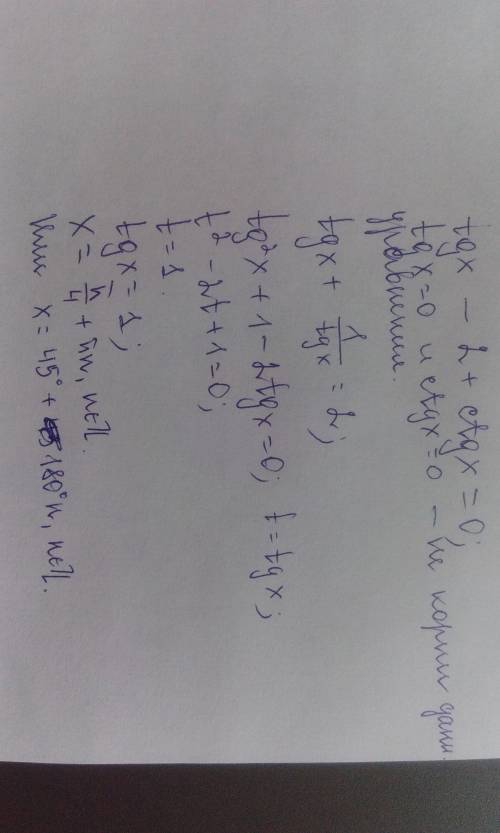 tgx - 2 + ctgx = 0;
tgx=0 и ctgx=0 - не корни данн.
уравнения.
tgx + 1/tgx = 2;
tg²x + 1 - 2tgx = 0; t = tgx;
t² - 2t + 1 = 0;
t = 1.
tgx = 1;
x = π/4 + πn, n∈Z.
или x = 45° + 180°n, n∈Z.